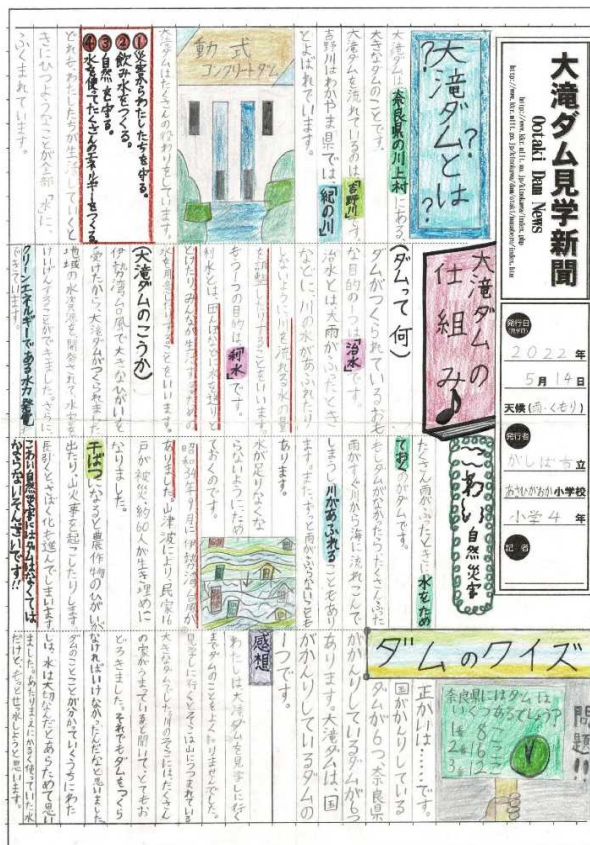 大滝ダム見学新聞
Ootaki Dam News
http://www.kkr.mlit.go.jp/kinokawa/index.php
発行日
2022年
5月14日
天候(雨・くもり)
発行者
かしば市立
あさひがおか小学校
小学4年
記者
大滝ダムとは
???
大滝ダムは奈良県の川上村にある
大きなダムのことです。
大滝ダムを流れているのは「吉野川」です。
吉野川はわかやま県では、「紀の川」
とよばれています。
動式
コンクリートダム
大滝ダムはたくさんの役わりをしています。
①災害からわたしたちを守る。
②飲み水をつくる。
③自然を守る。
④水を使ってたくさんのエネルギーをつくる。
どれも、わたしたちが生活していくと
きにひつようなことが全部「水」に、
ふくまれています。
大滝ダムの
仕組み♪
(ダムって何)
ダムがつくられている、おも
な目的の1つは「治水」です。
治水とは大雨がふったとき
などに、川の水があふれたり
しないように川を流れる水の量
を調整したりすることをいいます。
もう1つの目的は、「利水」です。
利水とは、田んぼなどに水を送りと
どけたり、みんなが生活するための
水を用意したりすることをいいます。
(大滝ダムのこうか)
伊勢湾台風で大きなひがいを
受けたから、大滝ダムがつくられました。
地域の水資源を開発されて、水害を
けいげんすることができました。さらに、
クリーンエネルギーである水力発電も
できています。
こわい
自然災害
たくさん雨がふったときに水をため
ておくのがダムです。
もしダムがなかったら、たくさんふった
雨がすぐ川から海に流れこんで
しまうし川があふれることもあり
ます。また、ずっと雨がふらないことも
あります。
水が足りなくな
らないようにため
ておくのです。
昭和34年9月に伊勢湾台風が
ありました。山津波により、民家16
戸が被災、約60人が生き埋めに
なりました。
干ばつになると農作物のひがいが
出たり、山火事を起こしたりします。
長引くとさばく化も進んでしまいます。
こわい自然災害にはダムはなくては
ならないそんざいです!!
ダムのクイズ
問題!!
奈良県にはダムは
いくつあるでしょう?
1番 8こ
2番 16こ
3番 12こ
正かいは……です。
国がかんりしている
ダムが6つ、奈良県
がかんりしているダムが6つ
あります。大滝ダムは、国
がかんりしているダムの
1つです。
感想
わたしは大滝ダムを見学しに行く
までダムのことをよく知りませんでした。
見学しに行くとそこは山につつまれている
大きなダムでした。川のそこには、たくさん
の家がうまっていると聞いて、とてもお
どろきました。それでもダムをつくら
なければいけなかったんだなと思いました。
ダムのことことが分かっていくうちにわた
しは、水は大切なんだとあらためて思い
ました。あたりまえにみんな使っていた水
だけど、もっとせつ水しようと思います。